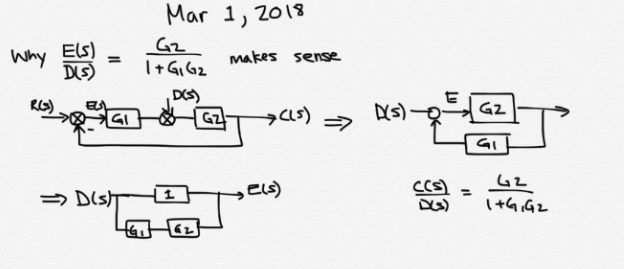 Mar 1, 2018
Why E(s)/D(s) = G2/1+G1G2 makes sense
R(s) E(s) G1 D(s) G2 C(s) ⇒ D(s) E G2
- G1
⇒ D(s) 1 E(s) C(s)/D(s) = G2/1+G1G2
G1 G2